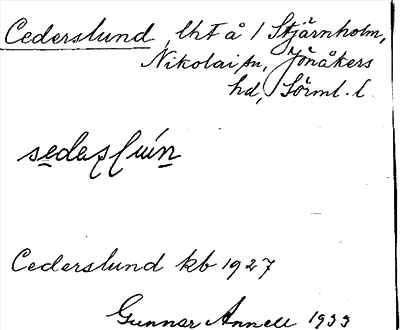 Cederslund, lht å / Stjärnholm,
Nikolai sn, Jönåkers
hd, Sörml. l.
Cederslund kb 1927
Gunnar Annell 1933